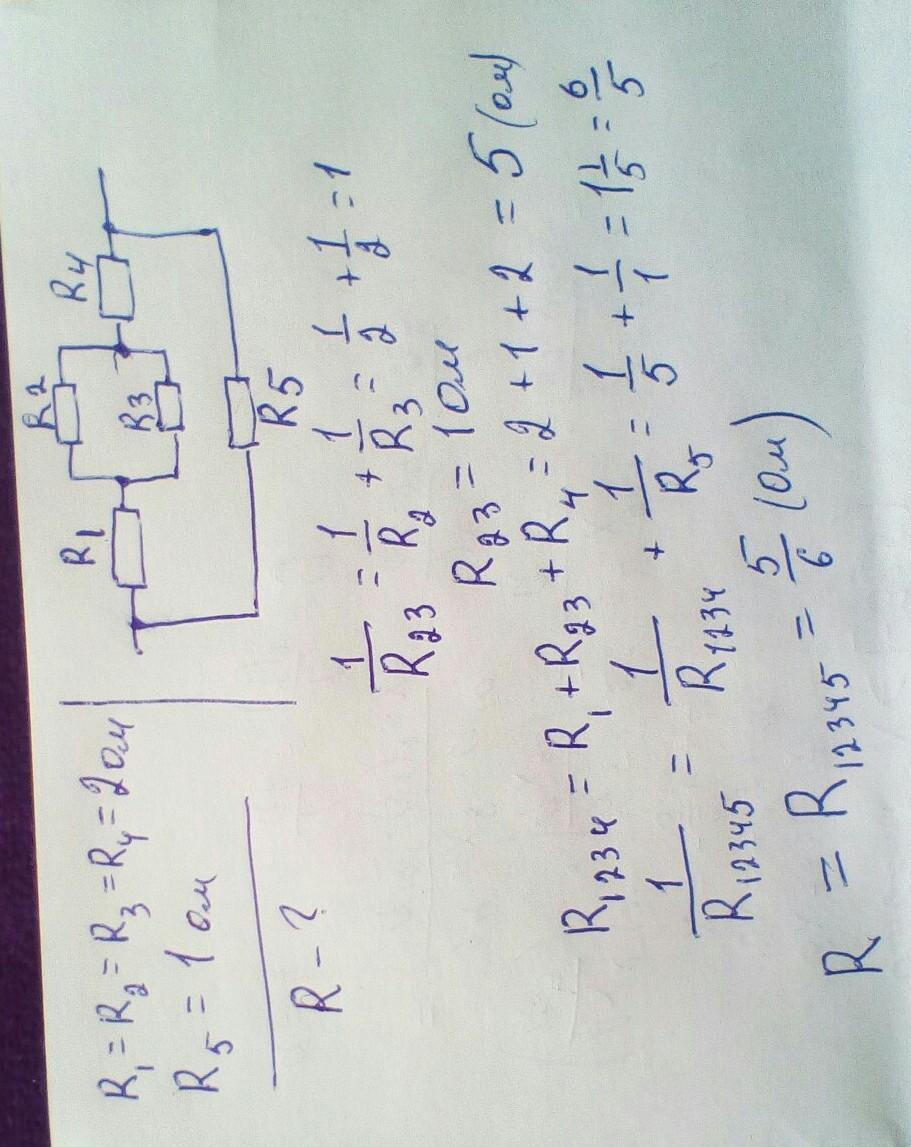 R₁ = R₂ = R₃ = R₄ = 2 ом
R₅ = 1 ом
R - ?
R1 R2 R3 R4
R5
1/R₂₃ = 1/R₂ + 1/R₃ = 1/2 + 1/2 = 1
R₂₃ = 1 ом
R₁₂₃₄ = R₁ + R₂₃ + R₄ = 2 + 1 + 2 = 5 (ом)
1/R₁₂₃₄₅ = 1/R₁₂₃₄ + 1/R₅ = 1/5 + 1/1 = 1 1/5 = 6/5
R = R₁₂₃₄₅ = 5/6 (ом)